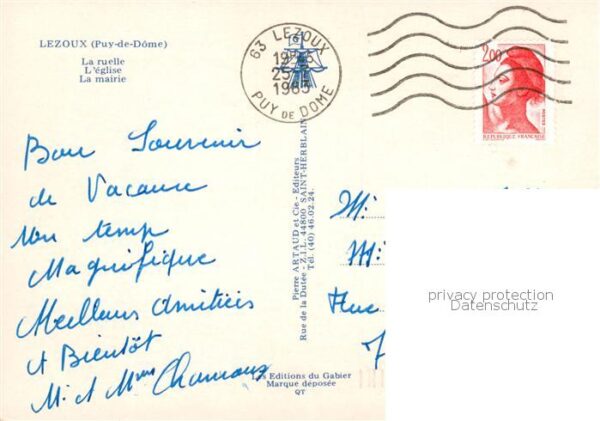 LEZOUX (Puy-de-Dôme)
La ruelle
L'église
La mairie
63 LEZOUX
25
1985
PUY DE DOME
2,00
REPUBLIQUE FRANÇAISE
Bon Souvenir
de Vacance
temp
Magnifique
Meilleurs Amitiés
et Bientôt
M. et Mme
Pierre ARTAUD et Cie - Editeurs
Rue de la Dutée - Z.I.L. 44800 SAINT-HERBLAIN
Tél. (40) 46.02.24.
Les Editions du Gabier
Marque déposée
QT
M.
M.
Rue
privacy protection
Datenschutz